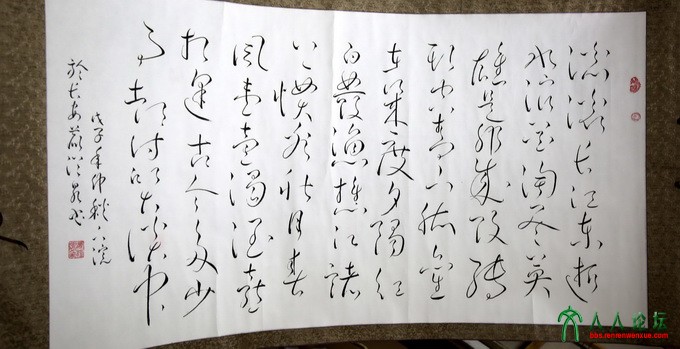 滚滚长江东逝
水浪花淘尽英
雄是非成败转
头空青山依旧
在几度夕阳红
白发渔樵江渚
上惯看秋月春
风壹壶浊酒喜
相逢古今多少
事都付笑谈中
戊子年仲秋
於长安
人人论坛
bbs.renrenwenxue.com